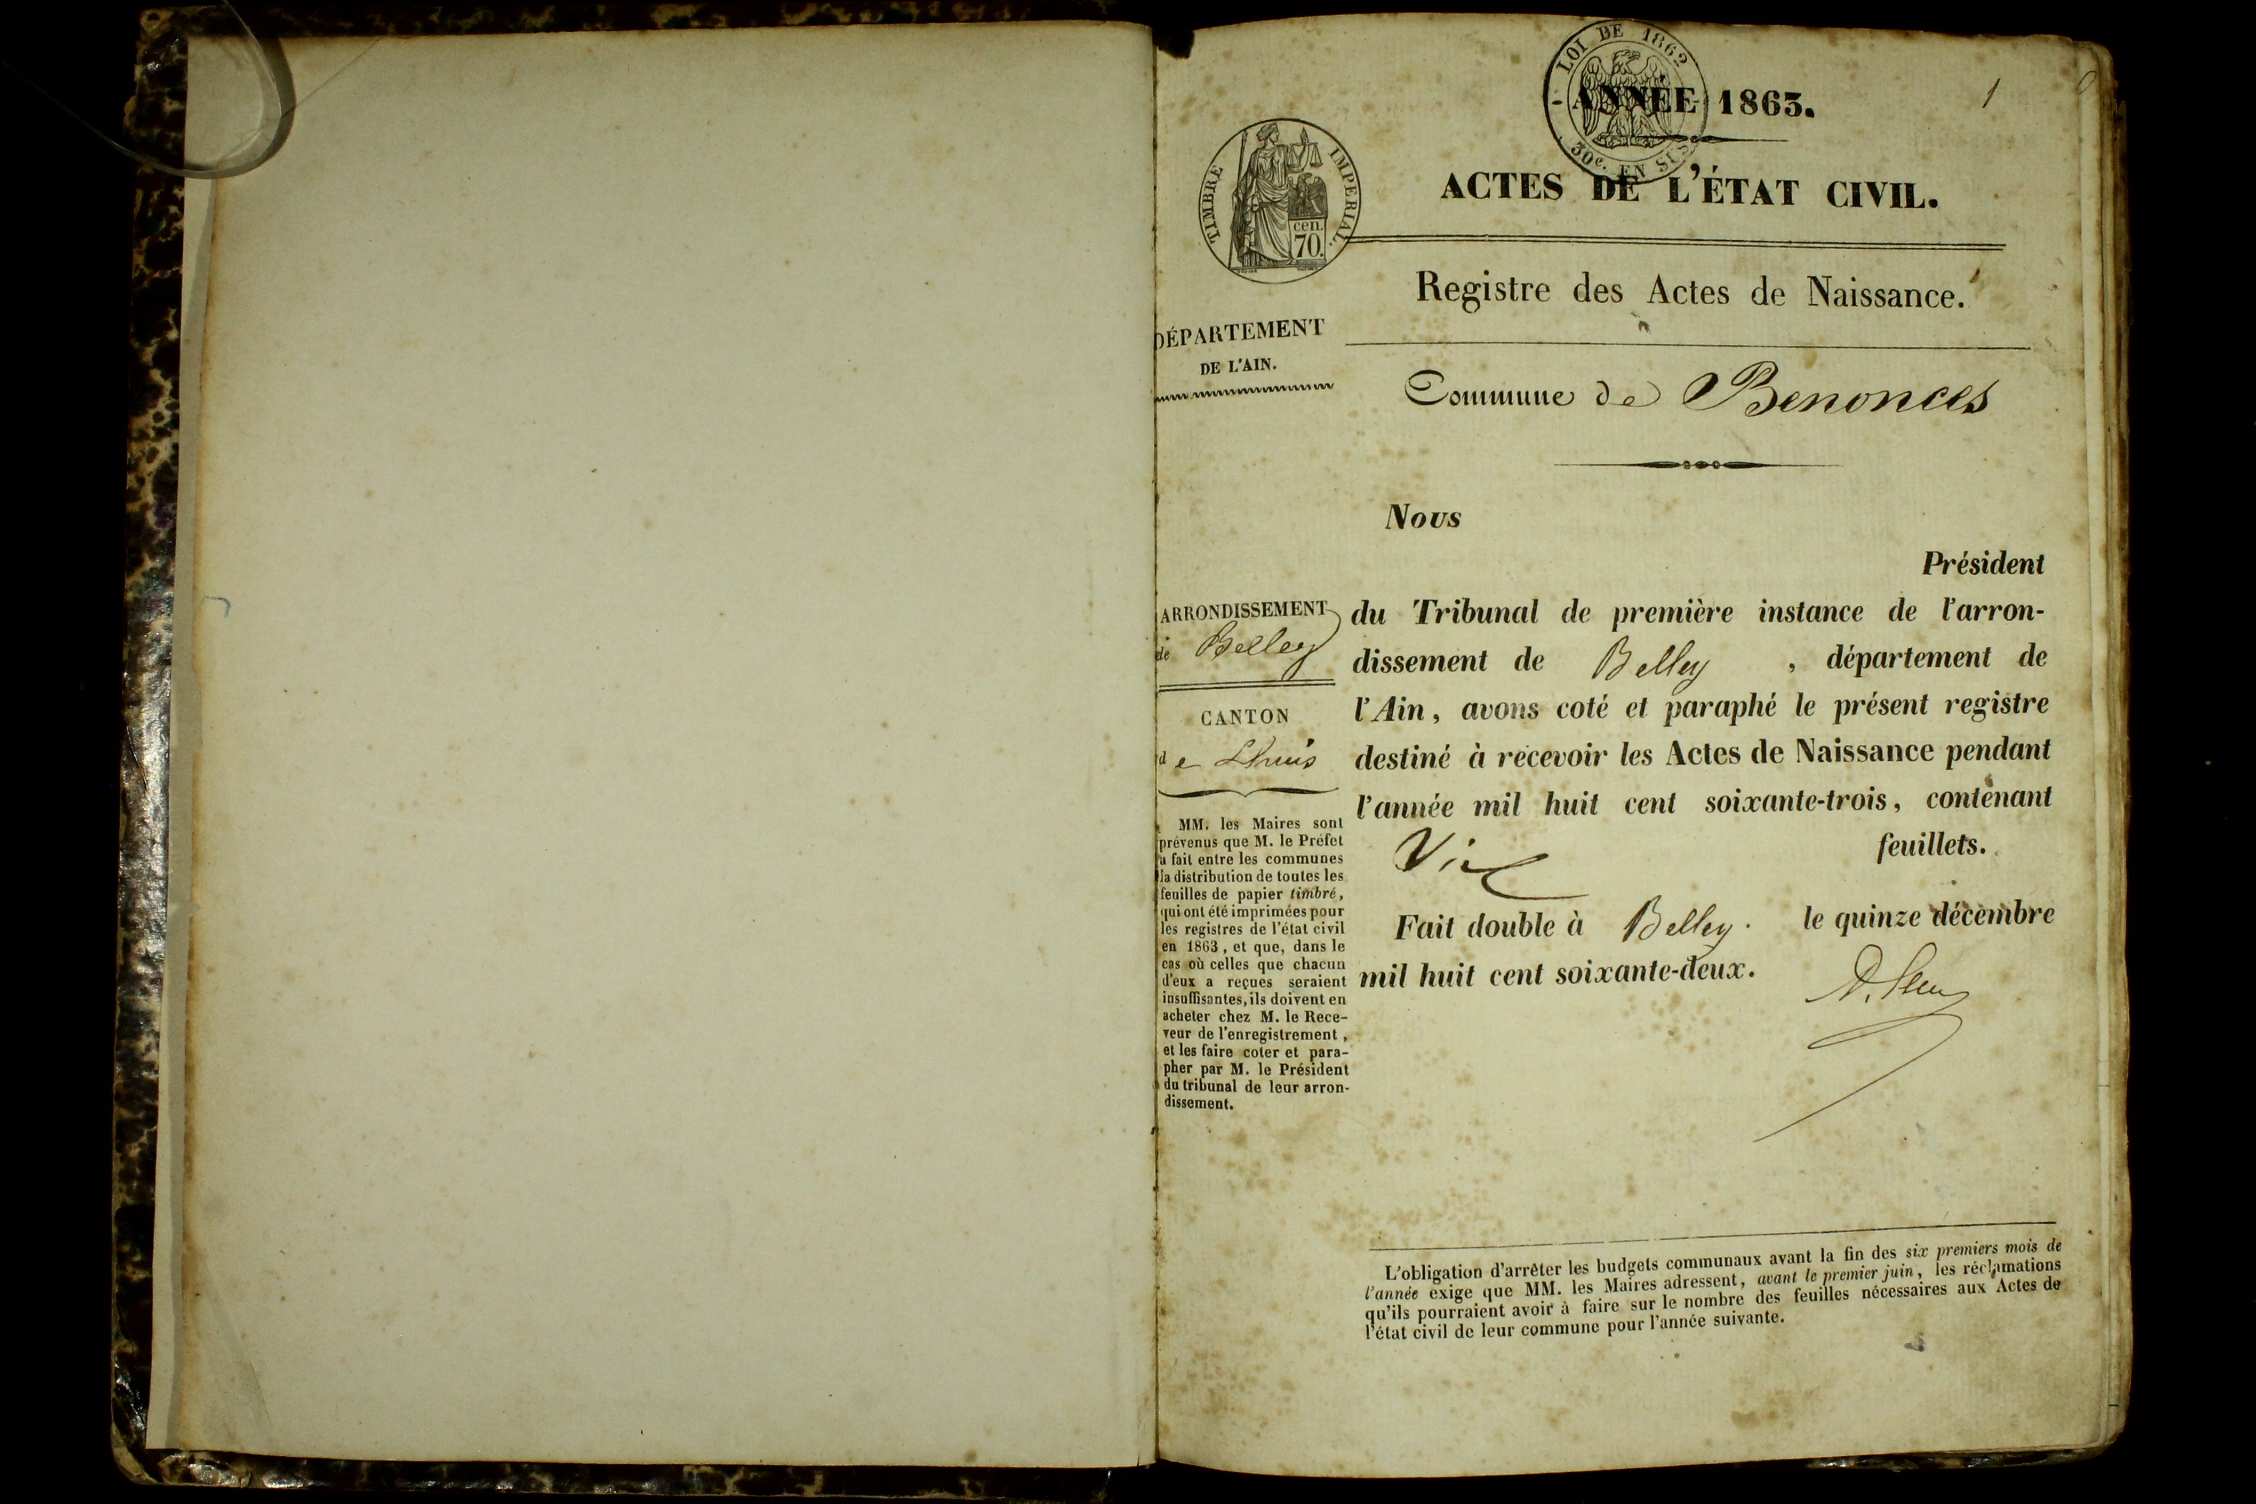 LOI DE 1862
30c. EN SUS
ANNÉE 1863.
1
TIMBRE IMPERIAL.
cen.
70.
ACTES DE L'ÉTAT CIVIL.
Registre des Actes de Naissance.
DÉPARTEMENT
DE L'AIN.
Commune de Benonces
Nous
Président
du Tribunal de première instance de l'arron-
dissement de Belley, département de
l'Ain, avons coté et paraphé le présent registre
destiné à recevoir les Actes de Naissance pendant
l'année mil huit cent soixante-trois, contenant
feuillets.
Fait double à Belley. le quinze décembre
mil huit cent soixante-deux.
ARRONDISSEMENT
de Belley
CANTON
de Lhuis
MM. les Maires sont
prévenus que M. le Préfet
a fait entre les communes
la distribution de toutes les
feuilles de papier timbré,
qui ont été imprimées pour
les registres de l'état civil
en 1863, et que, dans le
cas où celles que chacun
d'eux a reçues seraient
insuffisantes, ils doivent en
acheter chez M. le Rece-
veur de l'enregistrement,
et les faire coter et para-
pher par M. le Président
du tribunal de leur arron-
dissement.
L'obligation d'arrêter les budgets communaux avant la fin des six premiers mois de
l'année exige que MM. les Maires adressent, avant le premier juin, les réclamations
qu'ils pourraient avoir à faire sur le nombre des feuilles nécessaires aux Actes de
l'état civil de leur commune pour l'année suivante.